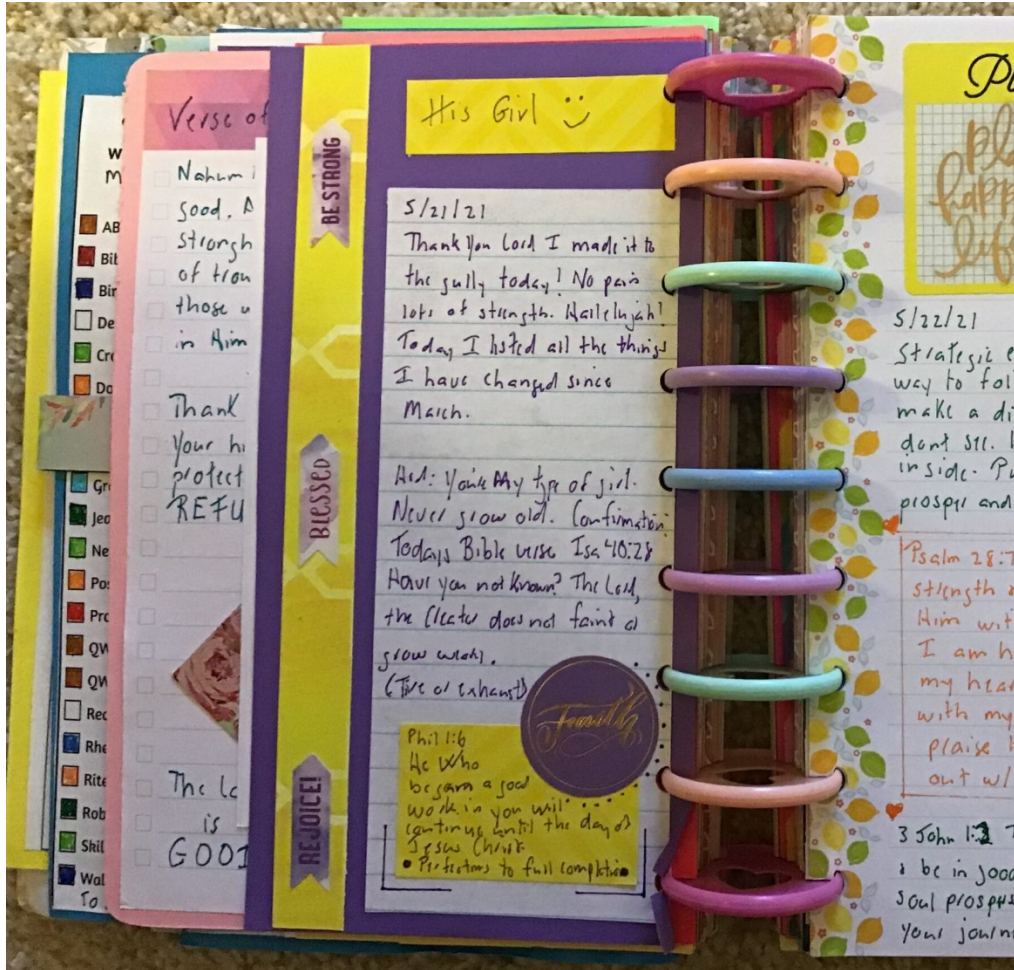 W
M
AB
Bib
Bir
De
Cre
Do
P
Gr
Jeo
Ne
Pos
Pro
QW
QW
Rec
Rhe
Rite
Rob
Skil
Wal
To
Verse of
Nahum 1
good. A
strength
of trou
those w
in Him
Thank
Your hi
protect
REFU
The Lo
is
GOOD
BE STRONG
BLESSED
REJOICE!
His Girl
5/21/21
Thank You Lord I made it to
the gully today! No pain
lots of strength. Hallelujah!
Today I listed all the things
I have changed since
March.
You're My type of girl.
Never grow old. Confirmation
Todays Bible verse Isa 40:28
Have you not known? The Lord,
the Creator does not faint or
grow weary.
(Tire or exhaust)
Faith
Phil 1:6
He Who
began a good
work in you will
continue until the day of
Jesus Christ
• Perfections to full completion
Pl
pl
happ
life
5/22/21
Strategic e
way to fol
make a di
dont see.
inside. Pu
prosper and
Psalm 28:7
strength &
Him wit
I am h
my hear
with my
praise H
out w/
3 John 1:2 T
& be in good
soul prospers
your journ